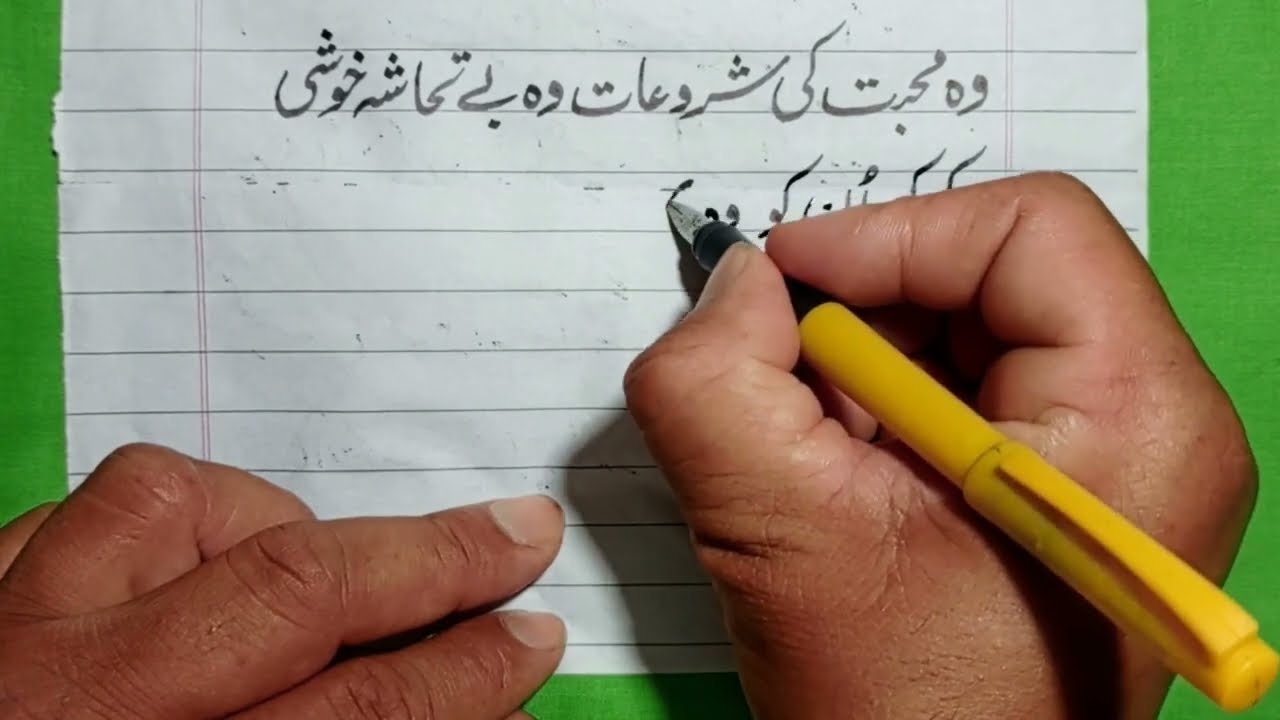 وہ محبت کی شروعات وہ بے تحاشہ خوشی
کو وہ